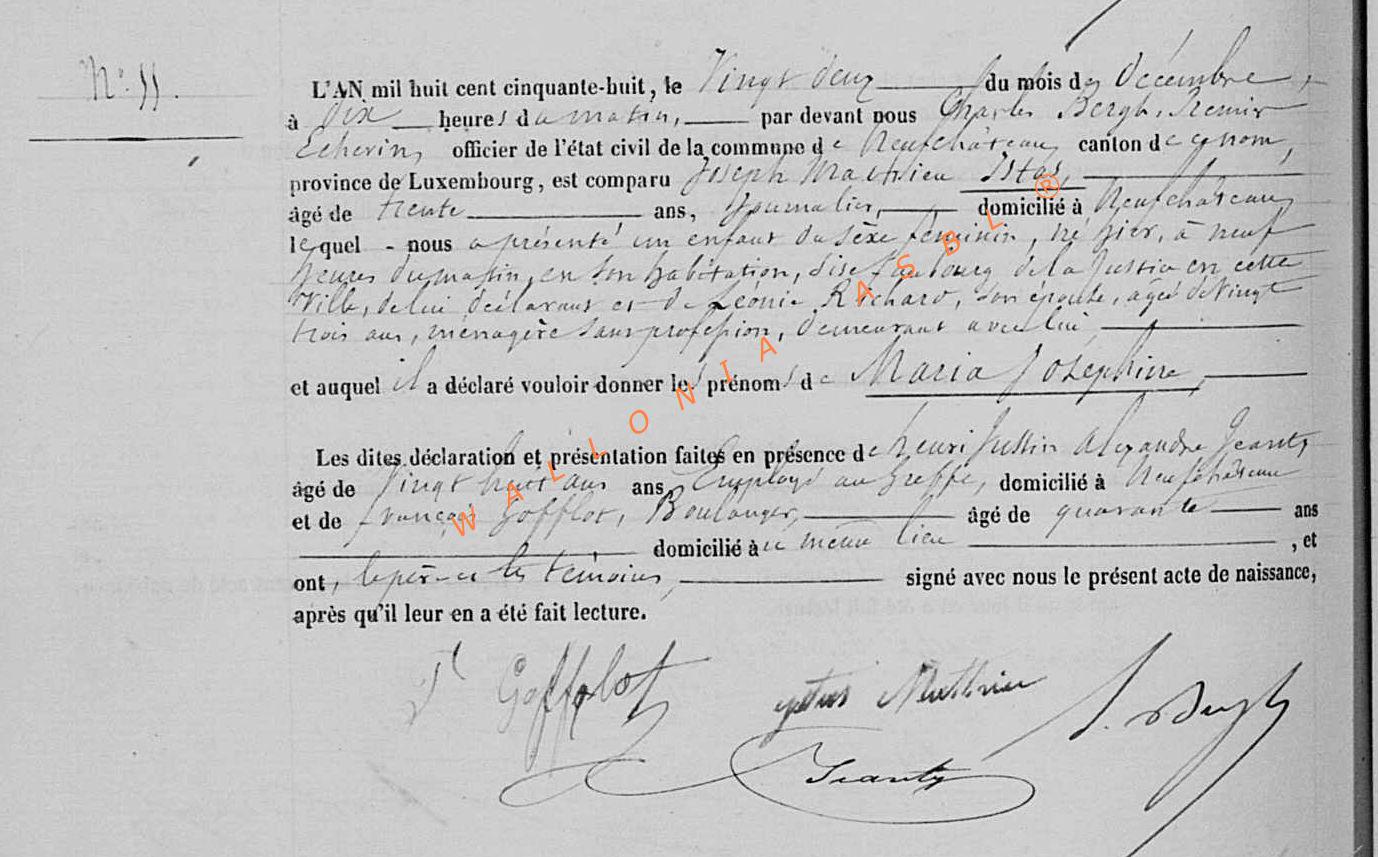 N° 55.
L'AN mil huit cent cinquante-huit, le Vingt deux du mois de Décembre,
à Dix heures du matin, par devant nous Charles Bergh, Premier
Echevin, officier de l'état civil de la commune de Neufchâteau, canton de ce nom,
province de Luxembourg, est comparu Joseph Mathieu Istas,
âgé de trente ans, Journalier, domicilié à Neufchâteau,
lequel - nous a présenté un enfant du sèxe féminin, né hier, à neuf
heures du matin, en son habitation, dise faubourg de la Justice en cette
Ville, de lui déclarant et de Léonie Richard, son épouse, agée de Vingt
trois ans, ménagère sans profession, demeurant avec lui
et auquel il a déclaré vouloir donner les prénoms de Maria Joséphine,
Les dites déclaration et présentation faites en présence de henri Justin Alexandre Jeanty
âgé de Vingt huit ans ans, Employé au Greffe, domicilié à Neufchâteau
et de françois Gofflot, Boulanger, âgé de quarante ans
domicilié à ce même lieu , et
ont, le père et les témoins, signé avec nous le présent acte de naissance,
après qu'il leur en a été fait lecture.
Gofflot
istas Mathieu
Jeanty
WALLONIA ASBL ®